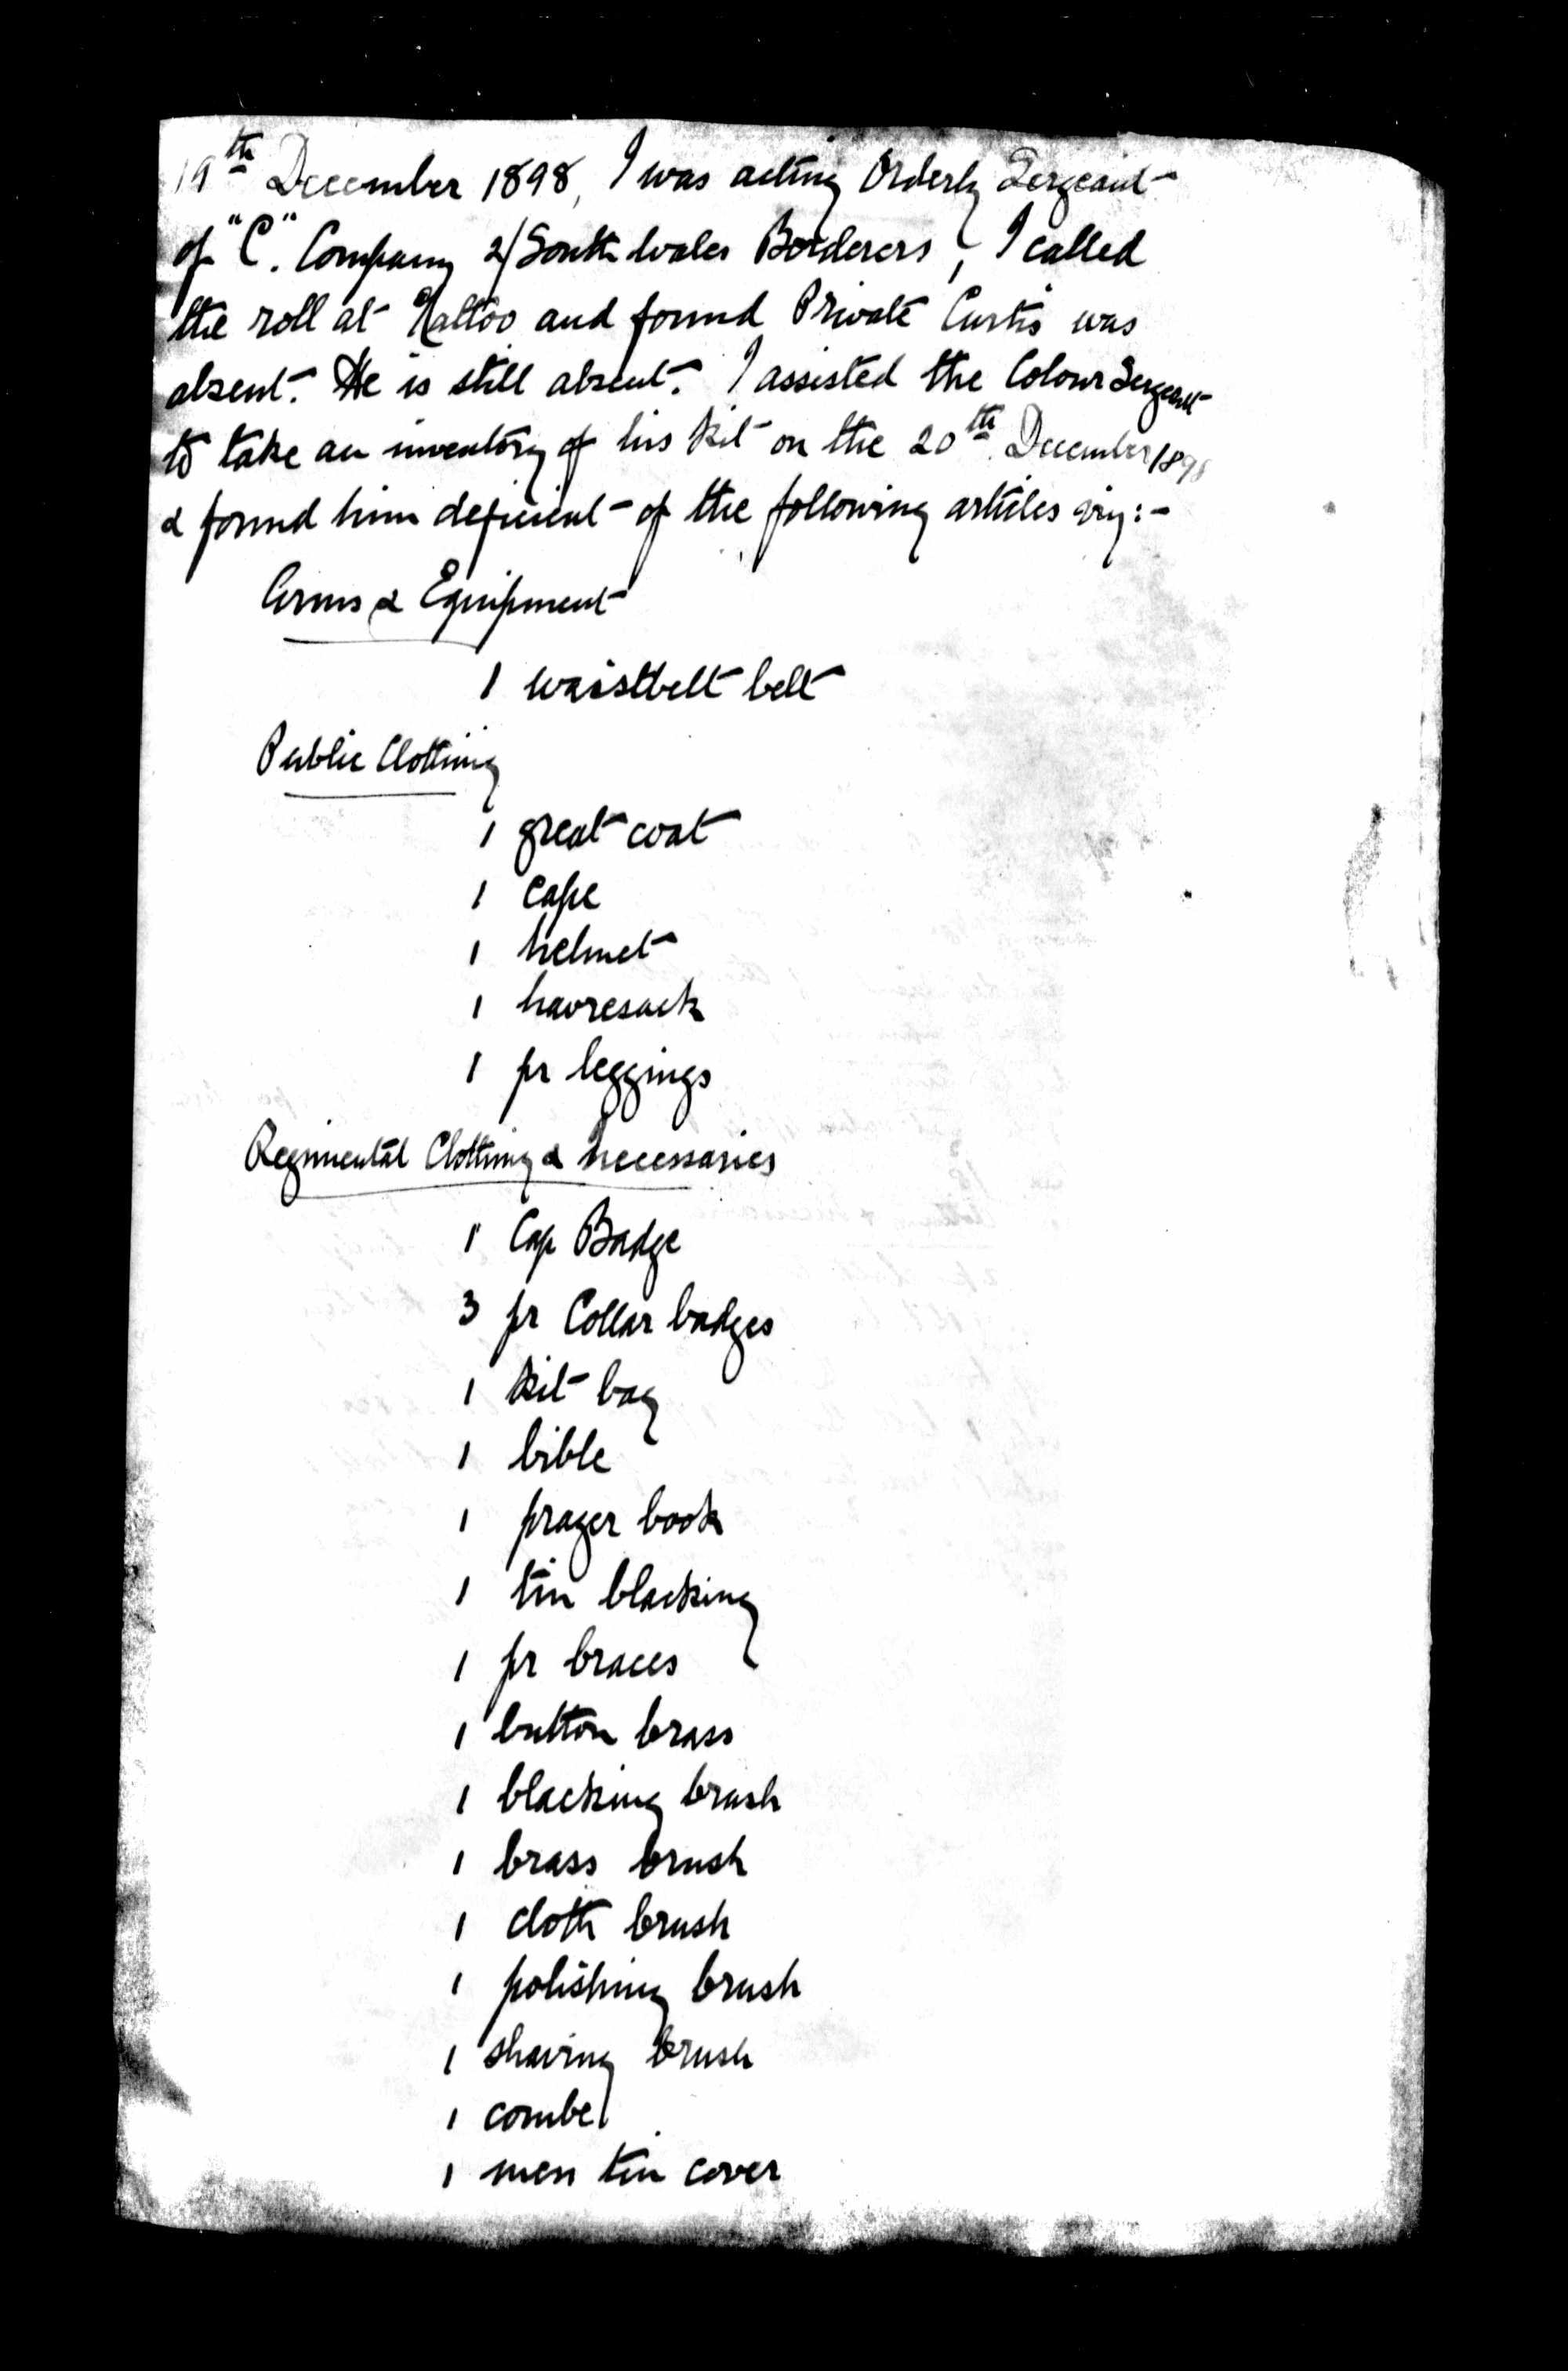 19th December 1898, I was acting Orderly Sergeant
of "C". Company 2/South Wales Borderers, I called
the roll at Tattoo and found Private Curtis was
absent. He is still absent. I assisted the Colour Sergeant
to take an inventory of his kit on the 20th. December 1898
& found him deficient of the following articles viz:-
Arms & Equipment
1 waistbelt belt
Public Clothing
1 great coat
1 cape
1 helmet
1 havresack
1 pr leggings
Regimental Clothing & necessaries
1 Cap Badge
3 pr Collar badges
1 Kit bag
1 bible
1 prayer book
1 tin blacking
1 pr braces
1 button brass
1 blacking brush
1 brass brush
1 cloth brush
1 polishing brush
1 shaving brush
1 combe
1 mess tin cover